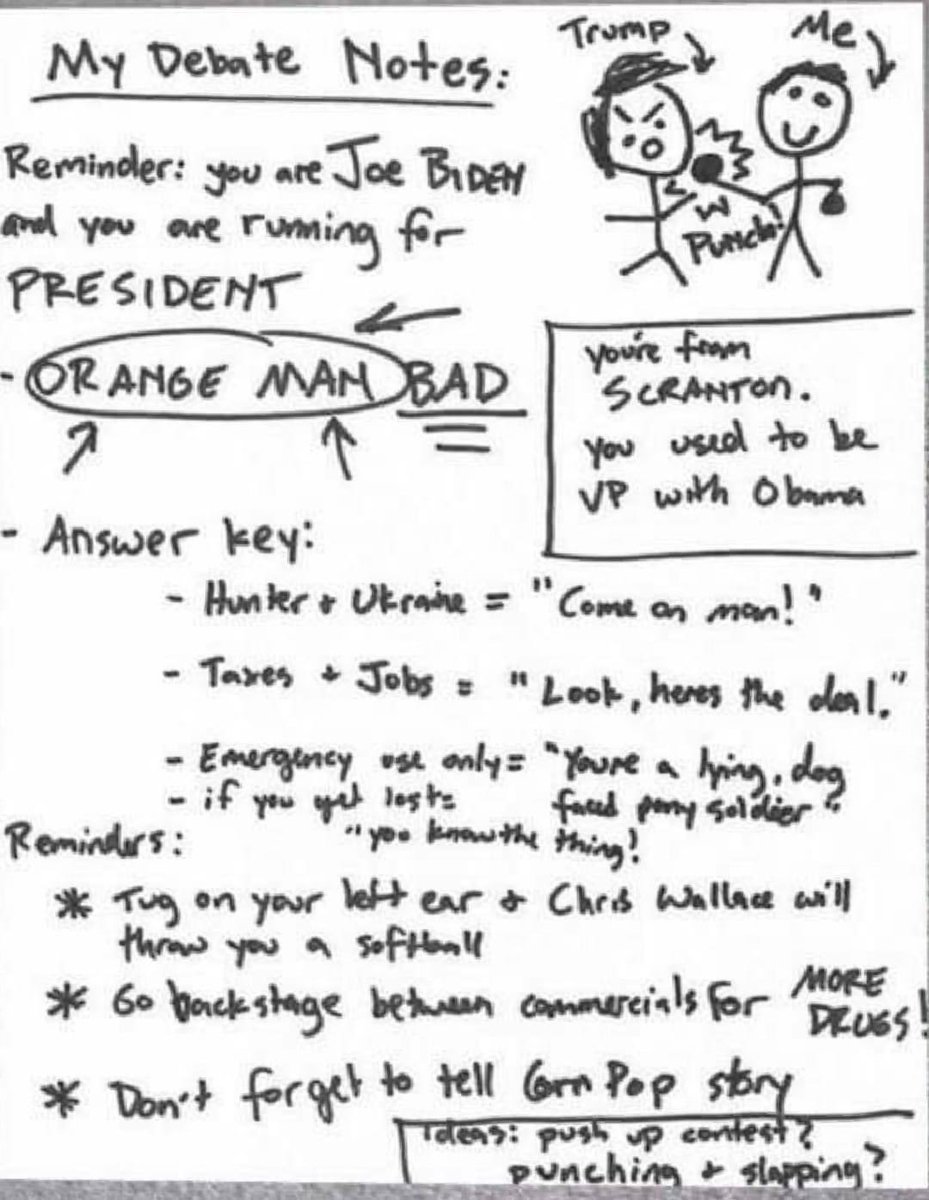 My Debate Notes:
Trump
Me
Punch!
Reminder: you are JOE BIDEN
and you are running for
PRESIDENT
- ORANGE MAN BAD
you're from
SCRANTON.
you used to be
VP with Obama
- Answer key:
- Hunter + Ukraine = "Come on man!"
- Taxes + Jobs = "Look, heres the deal."
- Emergency use only = "You're a lying, dog
faced pony soldier"
- if you get lost =
"you know the thing!
Reminders:
* Tug on your left ear + Chris Wallace will
throw you a softball
* Go backstage between commercials for MORE
DRUGS!
* Don't forget to tell Corn Pop story
ideas: push up contest?
punching + slapping?